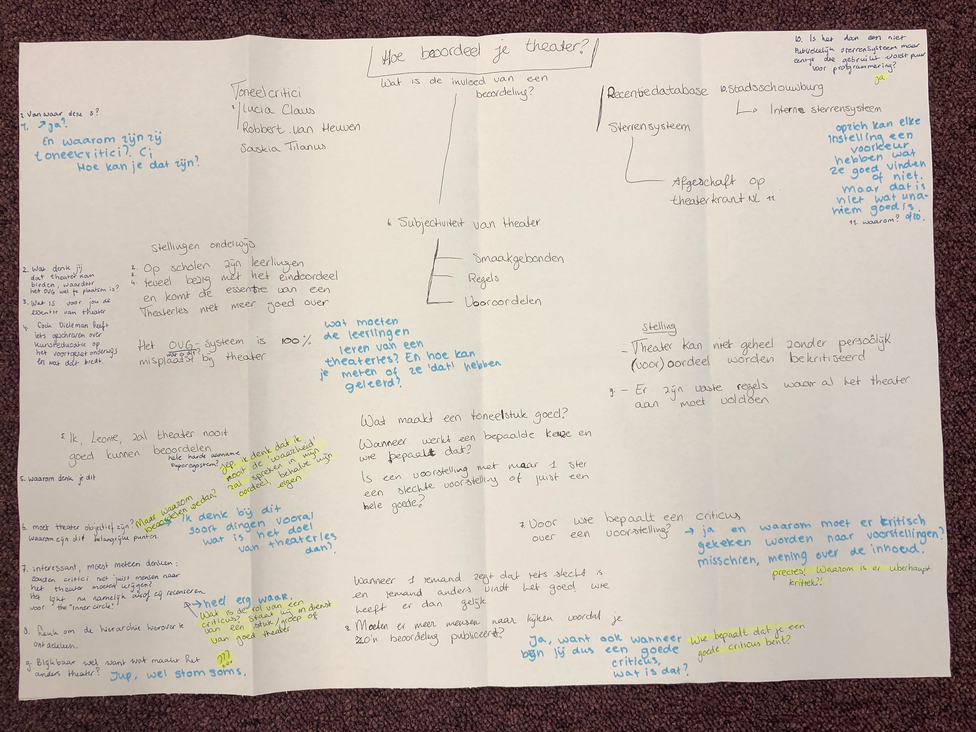 Hoe beoordeel je theater?
Wat is de invloed van een
beoordeling?
10. Is het dan een niet
Publiekelijk sterrensysteem maar
eentje die gebruikt wordt puur
voor programmering?
ja.
Toneelcritici
Lucia Claus
Robbert van Heuven
Saskia Tilanus
1. Van waar deze 3?
→ja?
En waarom zijn zij
toneelcritici?
Hoe kan je dat zijn?
Recentiedatabase
Stadsschouwburg
Interne sterrensysteem
Sterrensysteem
Afgeschaft op
theaterkrant NL 11
opzich kan elke
instelling een
voorkeur
hebben wat
ze goed vinden
of niet.
maar dat is
niet wat una-
niem goed is.
11 waarom?
6 Subjectiviteit van theater
Smaakgebonden
Regels
Vooroordelen
Stellingen onderwijs
2. Op scholen zijn leerlingen
3. teveel bezig met het eindoordeel
4. en komt de essentie van een
Theaterles niet meer goed over
Het OVG-systeem is 100%
wat is dit?
misplaatst bij theater
2. Wat denk jij
dat theater kan
bieden, waardoor
het OVG niet te plaatsen is?
3. Wat is voor jou de
essentie van theater
4. Cock Dieleman heeft
iets geschreven over
Kunsteducatie op
het voortgezet onderwijs
en wat dat biedt
wat moeten
de leerlingen
leren van een
theaterles? En hoe kan
je meten of ze 'dat' hebben
geleerd?
Stelling
- Theater kan niet geheel zonder persoonlijk
(voor)oordeel worden bekritiseerd
9. - Er zijn vaste regels waar al het theater
aan moet voldoen
5. Ik, Leonie, zal theater nooit
goed kunnen beoordelen
hele harde aanname
5. waarom denk je dit
Maar waarom
beoordelen we dan?
Jep, ik denk dat ik
nooit de 'waarheid'
zal spreken in mijn
oordeel, behalve mijn
eigen
Wat maakt een toneelstuk goed?
Wanneer werkt een bepaalde keuze en
wie bepaalt dat?
Is een voorstelling met maar 1 ster
een slechte voorstelling of juist een
hele goede?
6. moet theater objectief zijn?
waarom zijn dit belangrijke punten
Ik denk bij dit
soort dingen vooral
wat is het doel
van theaterles
dan?
7. Voor wie bepaalt een criticus
over een voorstelling?
→ ja en waarom moet er kritisch
gekeken worden naar voorstellingen?
misschien, mening over de inhoud.
precies! Waarom is er überhaupt
kritiek?!
7. interessant, moest meteen denken:
zouden critici niet juist mensen naar
het theater moeten krijgen?
Het lijkt nu namelijk alsof zij recenseren
voor the "inner circle"
→heel erg waar.
Wat is de rol van een
criticus? Staat hij in dienst
van een stuk/groep of
van goed theater
???
Wanneer 1 iemand zegt dat iets slecht is
en iemand anders vindt het goed, wie
heeft er dan gelijk
8. Moeten er meer mensen naar kijken voordat je
zo'n beoordeling publiceert?
8. Leuk om de hierachie hierover te
ontdekken.
9. Blijkbaar wel want wat maakt het
anders theater?
Jup, wel stom soms.
Ja, want ook wanneer
ben jij dus een goede
criticus,
wat is dat?
Wie bepaalt dat je een
goede criticus bent?